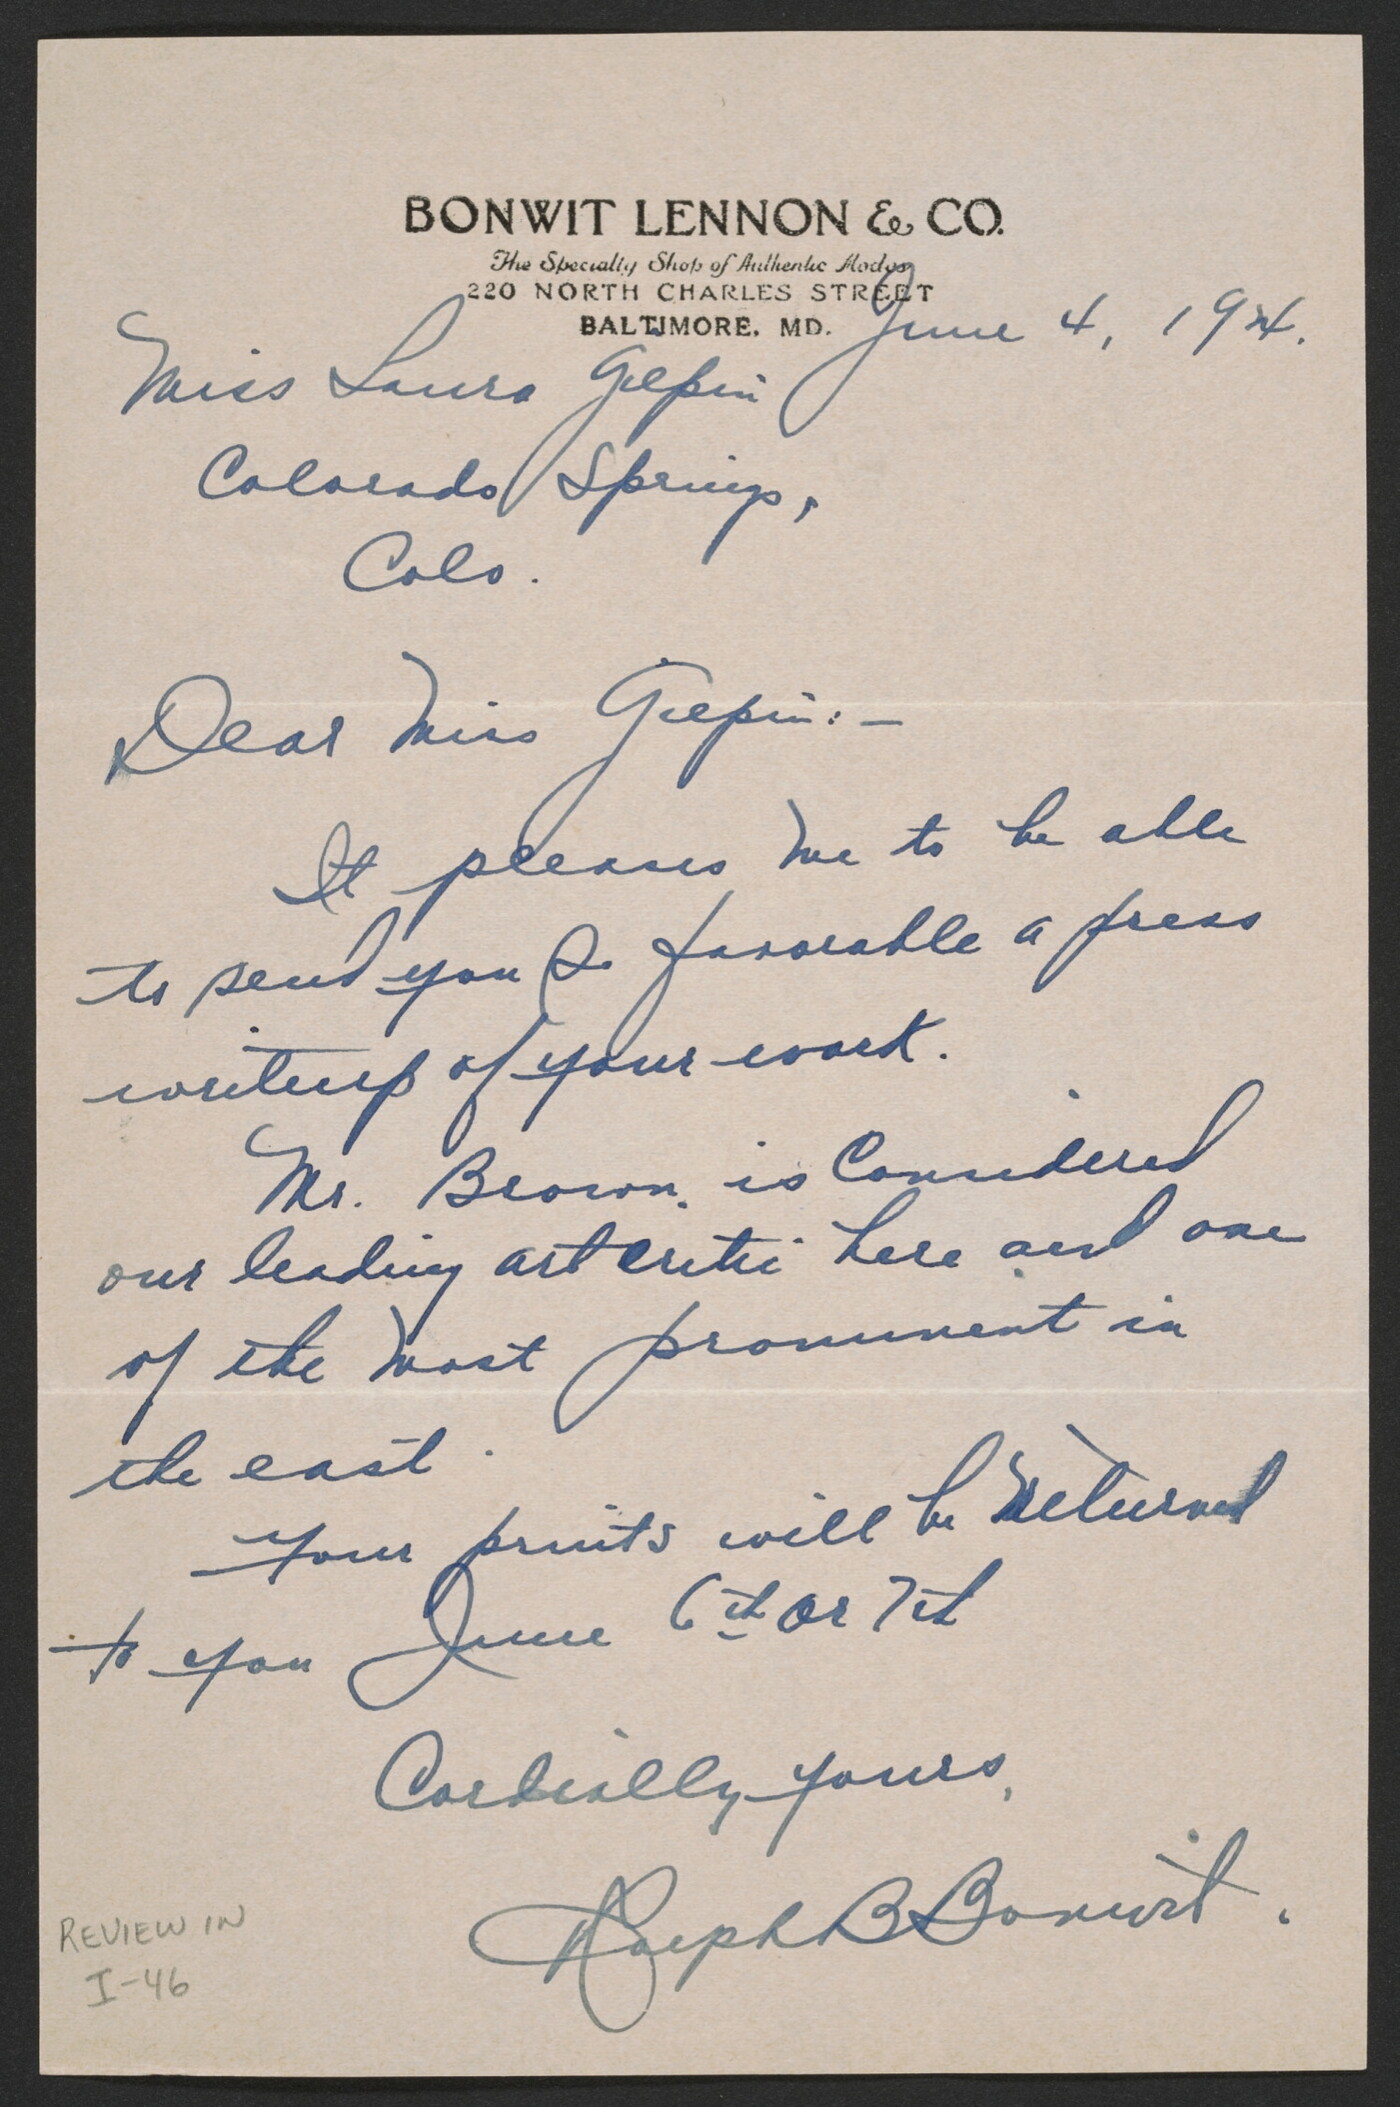 BONWIT LENNON & CO.
The Specialty Shop of Authentic Modes
220 NORTH CHARLES STREET
BALTIMORE, MD.
June 4, 1924.
Miss Laura Gilpin
Colorado Springs,
Colo.
Dear Miss Gilpin:-
It pleases me to be able
to send you so favorable a press
writeup of your work.
Mr. Brown, is Considered
our leading art critic here and one
of the most prominent in
the east.
Your prints will be returned
to you June 6th or 7th
Cordially yours,
Ralph B Bonwit.
REVIEW IN
I-46